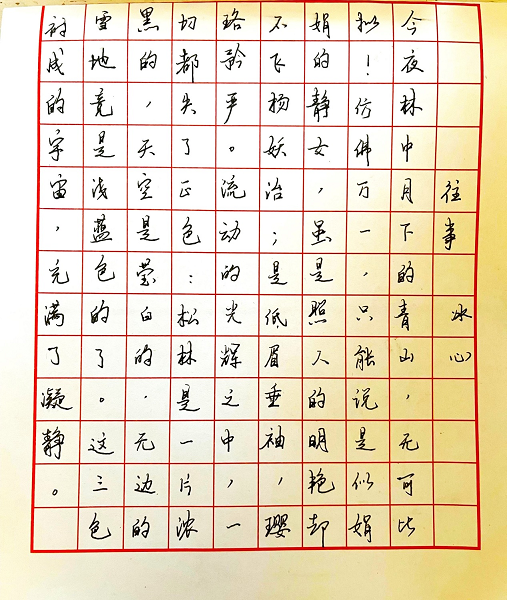 往事 冰心
今夜林中月下的青山，无可比
拟！仿佛万一，只能说是似娟
娟的静女，虽是照人的明艳却
不飞扬妖冶；是低眉垂袖，璎
珞矜严。流动的光辉之中，一
切都失了正色：松林是一片浓
黑的，天空是莹白的，无边的
雪地竟是浅蓝色的了。这三色
衬成的宇宙，充满了凝静。